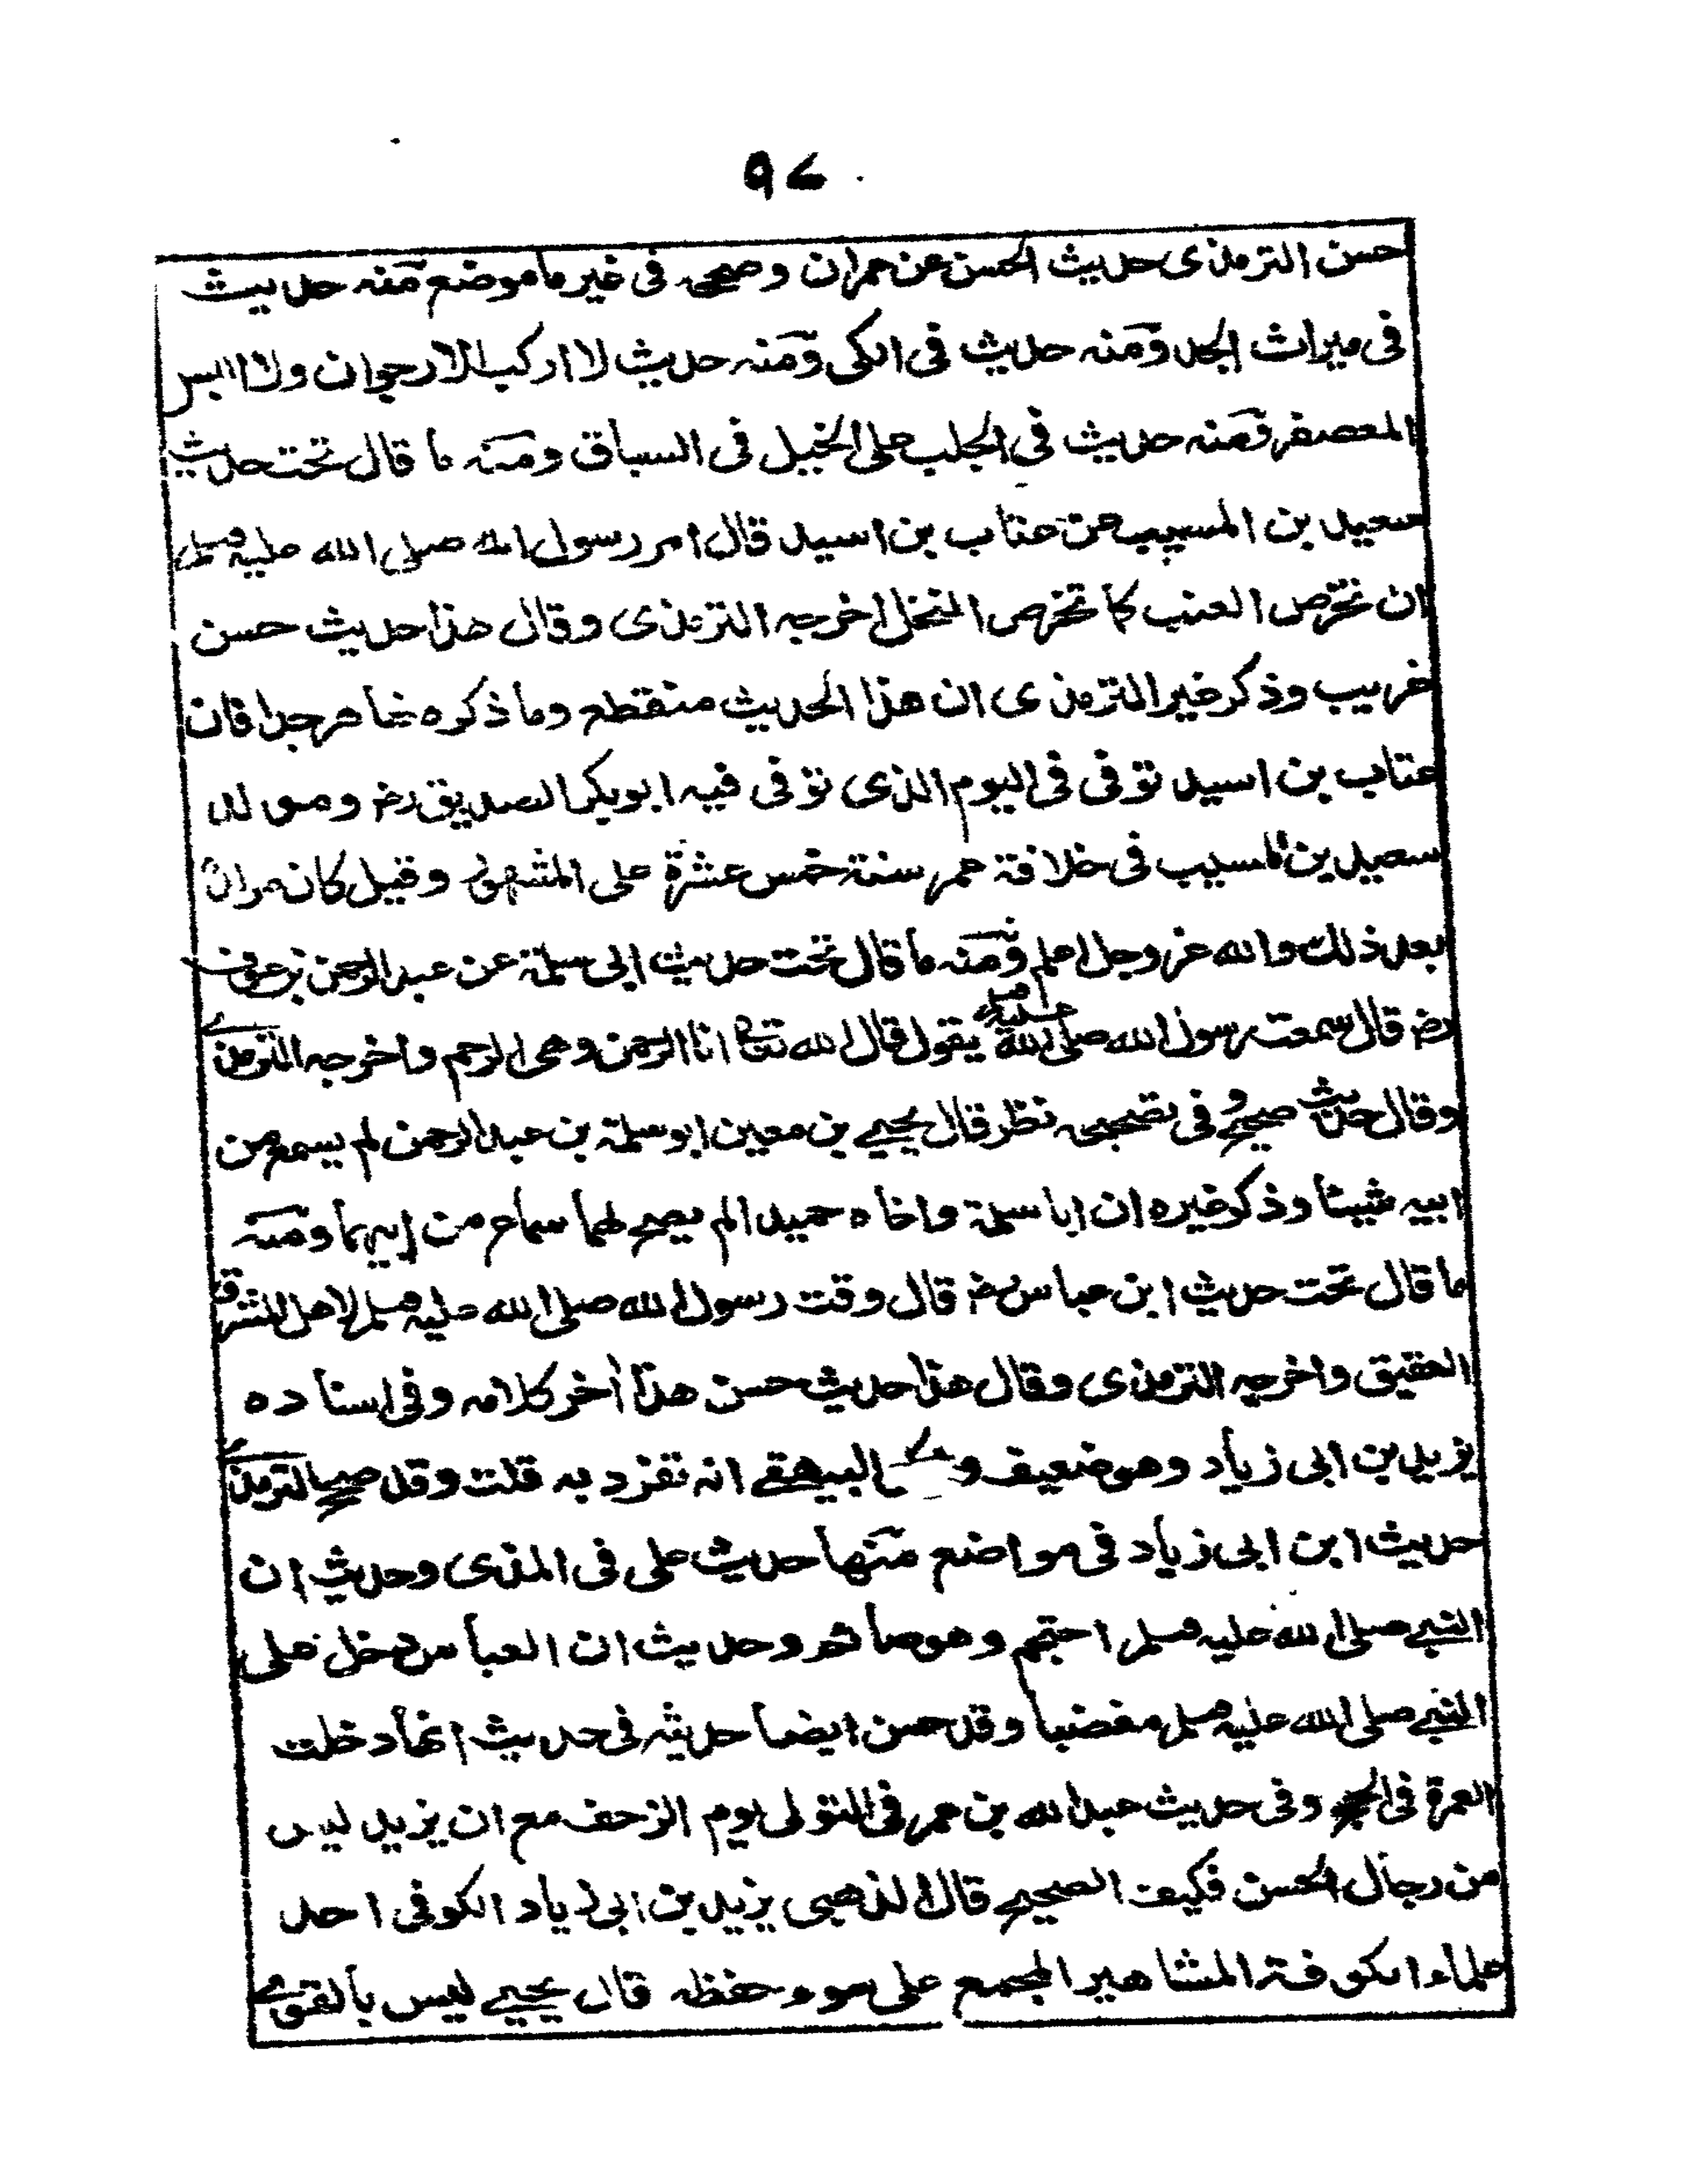 ٩٧
حسن الترمذى حديث الحسن عن عمران وصححه فى غير ما موضع منه حديث
فى ميراث الجد ومنه حديث فى الكى ومنه حديث لا اركب الارجوان ولا البس
المعصفر ومنه حديث فى الجلب على الخيل فى السباق ومنه ما قال تحت حديث
سعيد بن المسيب عن عتاب بن اسيد قال امر رسول الله صلى الله عليه وسلم
ان نخرص العنب كما نخرص النخل اخرجه الترمذى وقال هذا حديث حسن
غريب وذكر غير الترمذى ان هذا الحديث منقطع وما ذكره ظاهر جدا فان
عتاب بن اسيد توفى فى اليوم الذى توفى فيه ابوبكر الصديق رض ومولد
سعيد بن المسيب فى خلافة عمر سنة خمس عشرة على المشهور وقيل كان مولده
بعد ذلك والله عز وجل اعلم ومنه ما قال تحت حديث ابى سلمة عن عبد الرحمن بن عوف
رض قال سمعت رسول الله صلى الله عليه وسلم يقول قال الله تعالى انا الرحمن وهى الرحم واخرجه الترمذى
وقال حديث صحيح وفى تصحيحه نظر قال يحيى بن معين ابو سلمة بن عبد الرحمن لم يسمع من
ابيه شيئا وذكر غيره ان ابا سلمة واخاه حميدا لم يصح لهما سماع من ابيهما ومنه
ما قال تحت حديث ابن عباس رض قال وقت رسول الله صلى الله عليه وسلم لاهل المشرق
العقيق واخرجه الترمذى وقال هذا حديث حسن هذا آخر كلامه وفى اسناده
يزيد بن ابى زياد وهو ضعيف و البيهقى انه تفرد به قلت وقد صحح الترمذى
حديث ابن ابى زياد فى مواضع منها حديث على فى المذى وحديث ان
النبى صلى الله عليه وسلم احتجم وهو صائم وحديث ان العباس دخل على
النبى صلى الله عليه وسلم مغضبا وقد حسن ايضا حديثه فى حديث انما دخلت
العمرة فى الحج وفى حديث عبد الله بن عمر فى التولى يوم الزحف مع ان يزيد ليس
من رجال الحسن فكيف الصحيح قال الذهبى يزيد بن ابى زياد الكوفى احد
علماء الكوفة المشاهير المجمع على سوء حفظه قال يحيى ليس بالقوى